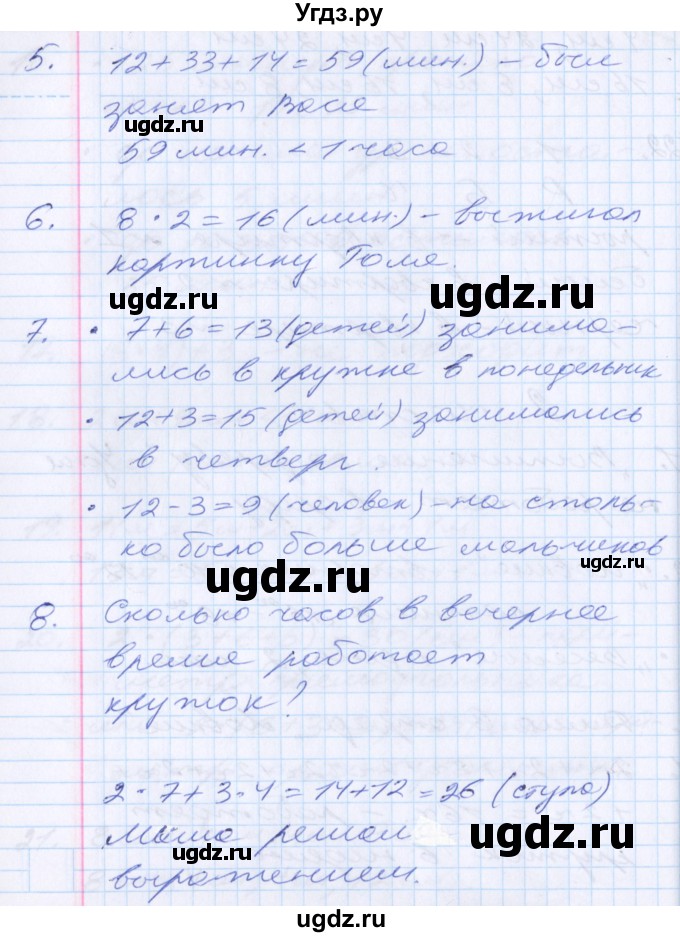 Угдз.ру
5. 12 + 33 + 14 = 59 (мин.) – был
занят Вася
ugdz.ru
59 мин. < 1 часа
ugdz.ru
6. 8 · 2 = 16 (мин.) – выжигал
картинку Толя.
ugdz.ru
ugdz.ru
7. • 7 + 6 = 13 (детей) занима-
лись в кружке в понедельник
• 12 + 3 = 15 (детей) занимались
в четверг.
• 12 - 3 = 9 (человек) – на столь-
ко было больше мальчиков
ugdz.ru
ugdz.ru
8. Сколько часов в вечернее
время работает
кружок?
2 · 7 + 3 · 4 = 14 + 12 = 26 (стула)
Миша решал
ugdz.ru
ugdz.ru
выражением.
ugdz.ru